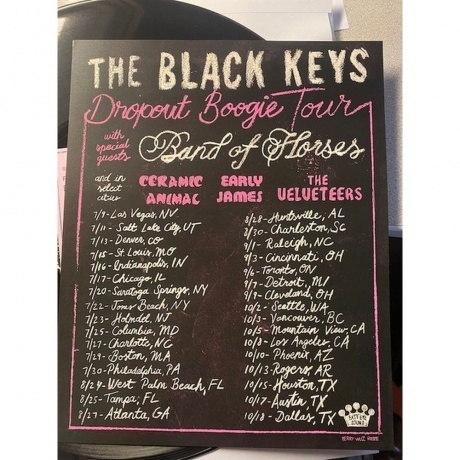 THE BLACK KEYS
Dropout Boogie Tour
with special guests
Band of Horses
and in select cities
CERAMIC ANIMAL
EARLY JAMES
THE VELVETEERS
7/9-Las Vegas, NV
7/11-Salt Lake City, UT
7/13-Denver, CO
7/15-St. Louis, MO
7/16-Indianapolis, IN
7/17-Chicago, IL
7/20-Saratoga Springs, NY
7/22-Jones Beach, NY
7/23-Holmdel, NJ
7/25-Columbia, MD
7/27-Charlotte, NC
7/29-Boston, MA
7/30-Philadelphia, PA
8/24-West Palm Beach, FL
8/25-Tampa, FL
8/27-Atlanta, GA
8/28-Huntsville, AL
8/30-Charleston, SC
9/1-Raleigh, NC
9/3-Cincinnati, OH
9/6-Toronto, ON
9/8-Detroit, MI
9/9-Cleveland, OH
10/2-Seattle, WA
10/3-Vancouver, BC
10/5-Mountain View, CA
10/8-Los Angeles, CA
10/10-Phoenix, AZ
10/13-Rogers, AR
10/15-Houston, TX
10/17-Austin, TX
10/18-Dallas, TX
EASY EYE SOUND